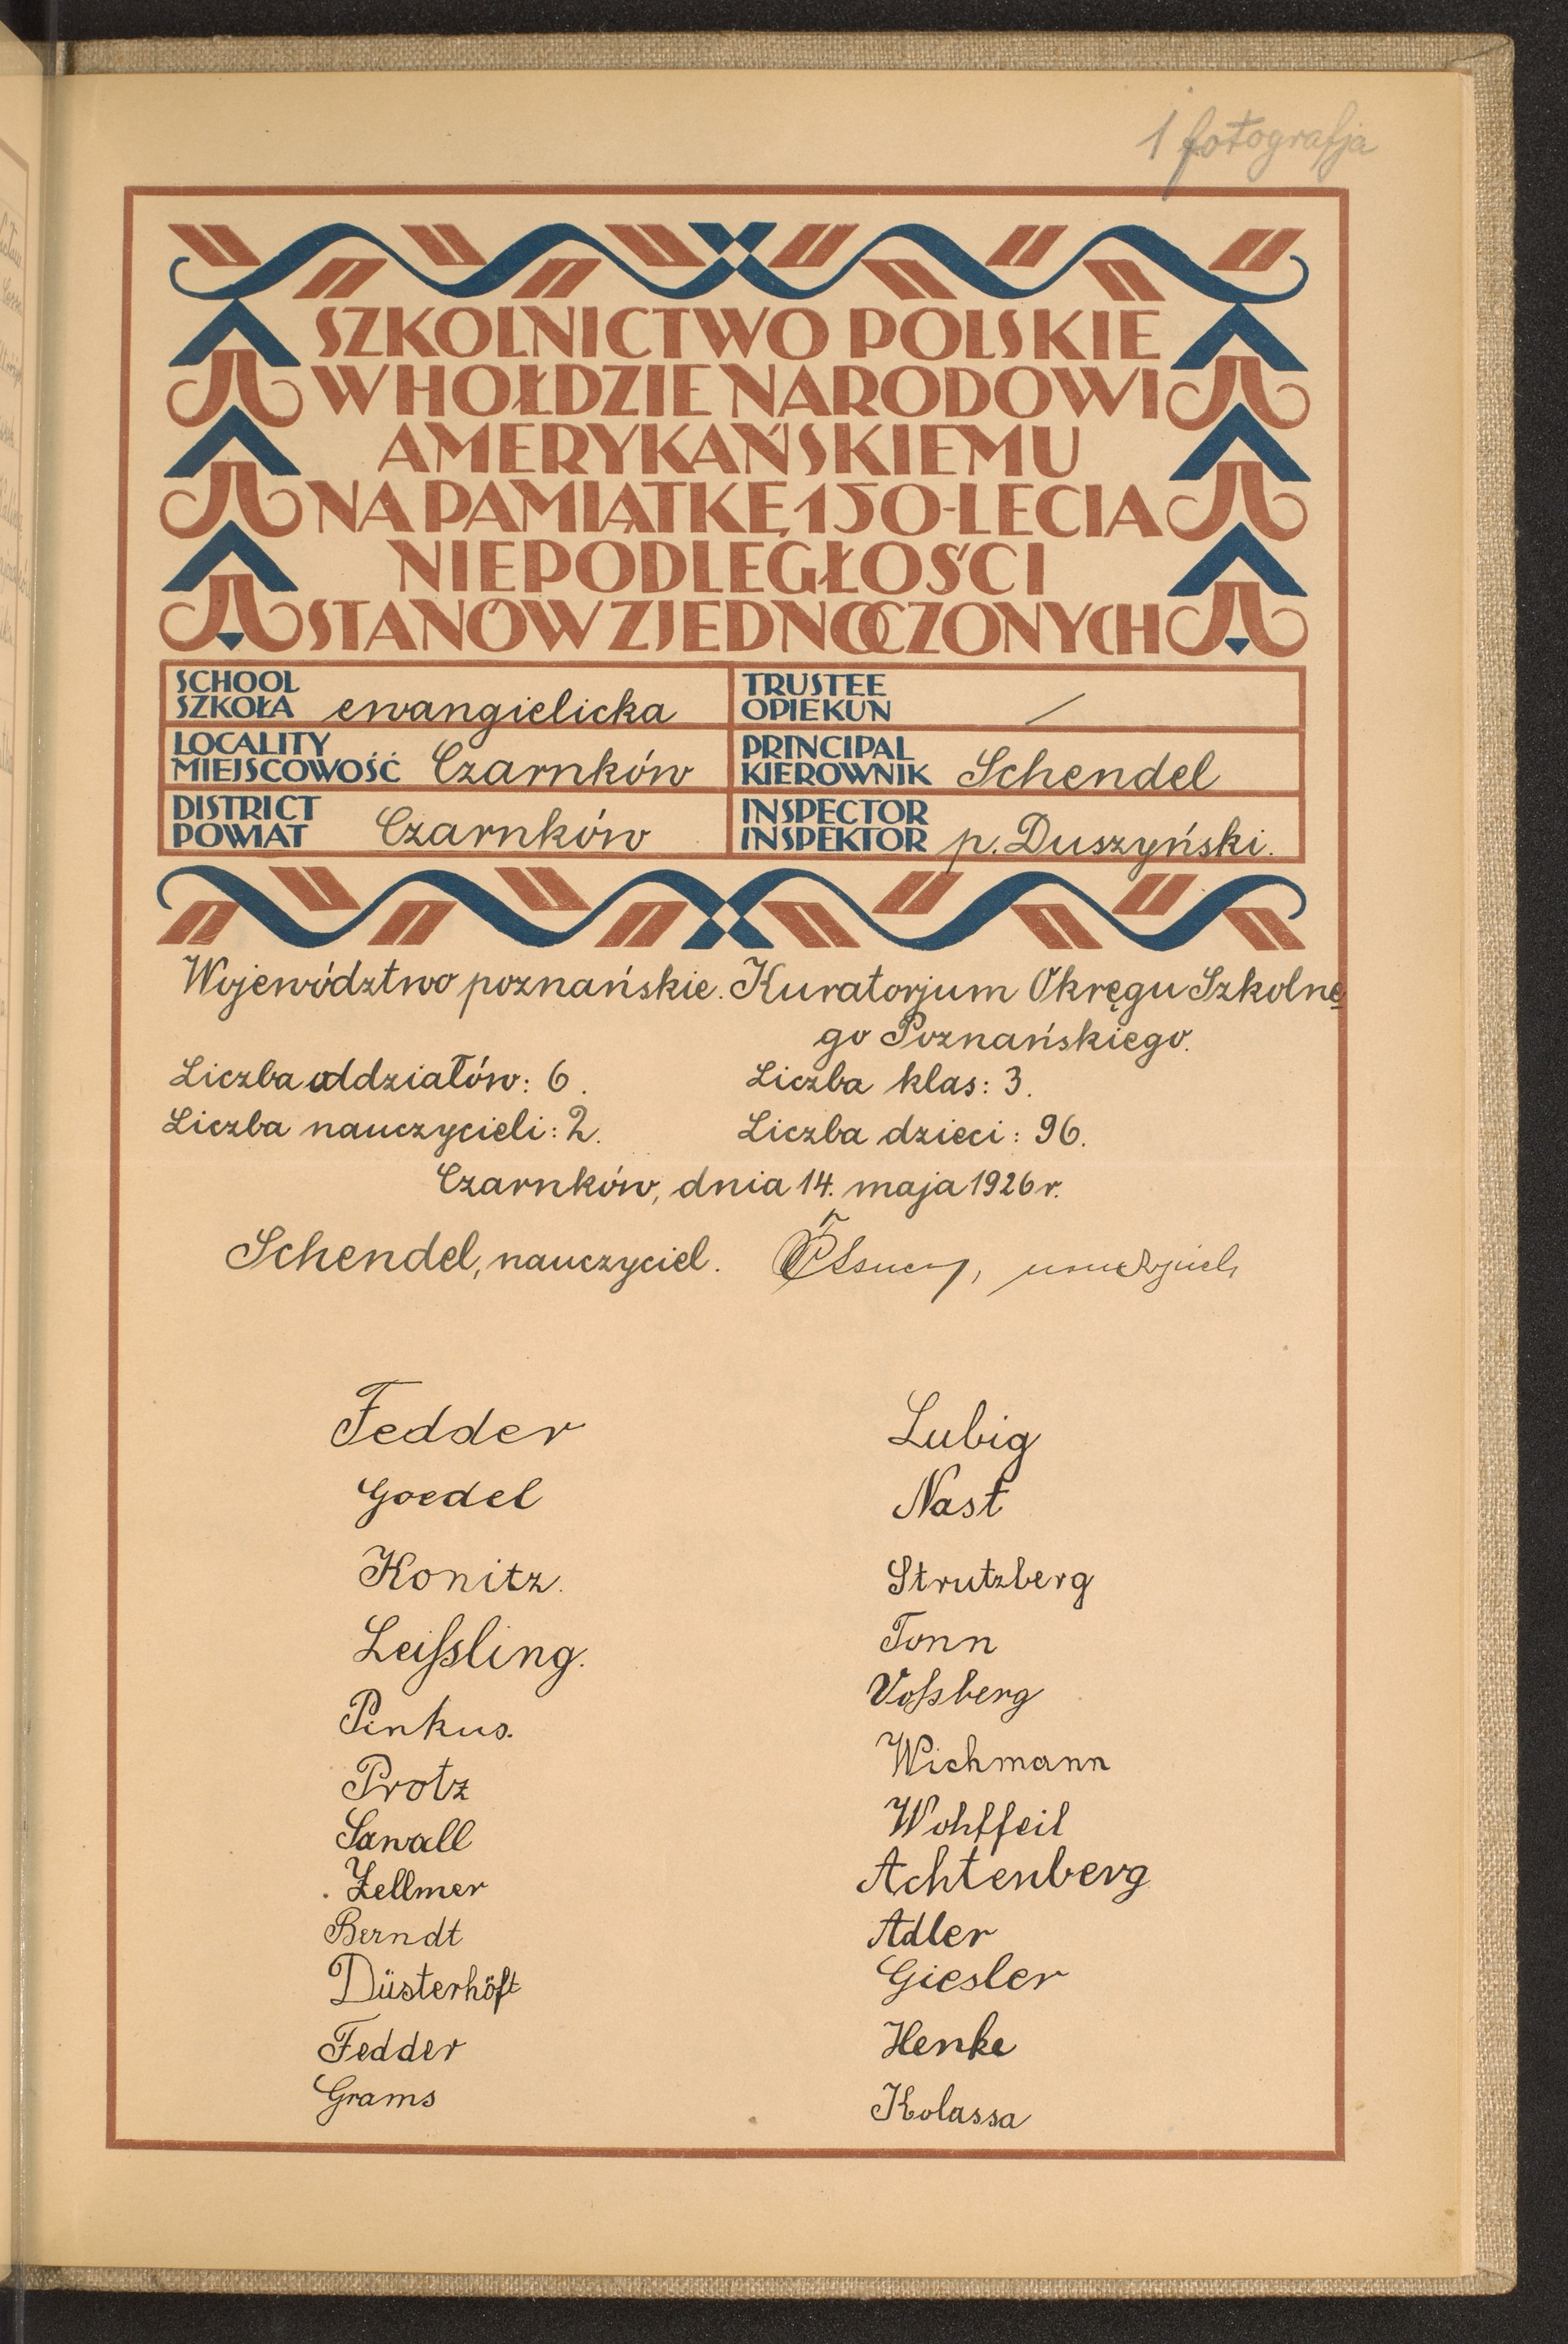 1 fotografja
SZKOLNICTWO POLSKIE
W HOŁDZIE NARODOWI
AMERYKAŃSKIEMU
NA PAMIĄTKĘ 150-LECIA
NIEPODLEGŁOŚCI
STANÓW ZJEDNOCZONYCH
SCHOOL
SZKOŁA ewangielicka
TRUSTEE
OPIEKUN /
LOCALITY
MIEJSCOWOŚĆ Czarnków
PRINCIPAL
KIEROWNIK Schendel
DISTRICT
POWIAT Czarnków
INSPECTOR
INSPEKTOR p. Duszyński.
Województwo poznańskie. Kuratorjum Okręgu Szkolne
go Poznańskiego.
Liczba oddziałów: 6. Liczba klas: 3.
Liczba nauczycieli: 2. Liczba dzieci: 96.
Czarnków, dnia 14. maja 1926 r.
Schendel, nauczyciel. nauczyciel
Fedder
Goedel
Konitz.
Leiſsling.
Pinkus.
Protz
Sawall
Zellmer
Berndt
Düsterhöft
Fedder
Grams
Lubig
Nast
Strutzberg
Tonn
Voſsberg
Wichmann
Wohlfeil
Achtenberg
Adler
Giesler
Henke
Kolassa